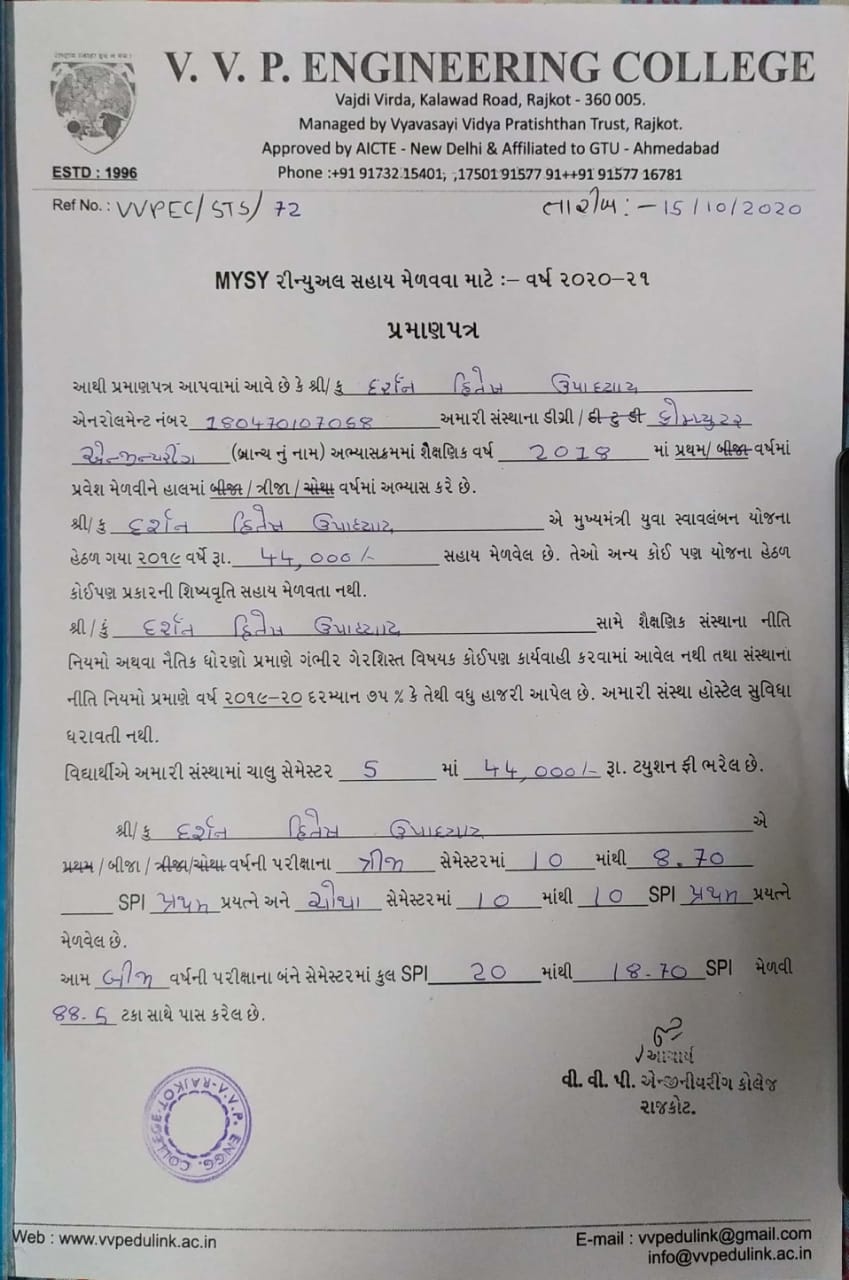 V. V. P. ENGINEERING COLLEGE
Vajdi Virda, Kalawad Road, Rajkot - 360 005.
Managed by Vyavasayi Vidya Pratishthan Trust, Rajkot.
Approved by AICTE - New Delhi & Affiliated to GTU - Ahmedabad
ESTD : 1996
Phone :+91 91732 15401, ,17501 91577 91++91 91577 16781
Ref No. : VVPEC/STS/72
તારીખ :- 15/10/2020
MYSY રીન્યુઅલ સહાય મેળવવા માટે :– વર્ષ ૨૦૨૦–૨૧
પ્રમાણપત્ર
આથી પ્રમાણપત્ર આપવામાં આવે છે કે શ્રી/ કુ દર્શન હિતેષ ઉપાધ્યાય
એનરોલમેન્ટ નંબર 180470107068 અમારી સંસ્થાના ડીગ્રી / ડી ટુ ડી કોમ્પ્યુટર
એન્જીન્યરીંગ (બ્રાન્ચ નું નામ) અભ્યાસક્રમમાં શૈક્ષણિક વર્ષ 2018 માં પ્રથમ/ બીજા વર્ષમાં
પ્રવેશ મેળવીને હાલમાં બીજા / ત્રીજા / ચોથા વર્ષમાં અભ્યાસ કરે છે.
શ્રી/ કુ દર્શન હિતેષ ઉપાધ્યાય એ મુખ્યમંત્રી યુવા સ્વાવલંબન યોજના
હેઠળ ગયા ૨૦૧૯ વર્ષે રૂા. 44,000/- સહાય મેળવેલ છે. તેઓ અન્ય કોઈ પણ યોજના હેઠળ
કોઈપણ પ્રકારની શિષ્યવૃતિ સહાય મેળવતા નથી.
શ્રી / કું દર્શન હિતેષ ઉપાધ્યાય સામે શૈક્ષણિક સંસ્થાના નીતિ
નિયમો અથવા નૈતિક ધોરણો પ્રમાણે ગંભીર ગેરશિસ્ત વિષયક કોઈપણ કાર્યવાહી કરવામાં આવેલ નથી તથા સંસ્થાના
નીતિ નિયમો પ્રમાણે વર્ષ ૨૦૧૯–૨૦ દરમ્યાન ૭૫ % કે તેથી વધુ હાજરી આપેલ છે. અમારી સંસ્થા હોસ્ટેલ સુવિધા
ધરાવતી નથી.
વિદ્યાર્થીએ અમારી સંસ્થામાં ચાલુ સેમેસ્ટર 5 માં 44,000/- રૂા. ટયુશન ફી ભરેલ છે.
શ્રી/ કુ દર્શન હિતેષ ઉપાધ્યાય એ
પ્રથમ / બીજા / ત્રીજા/ચોથા વર્ષની પરીક્ષાના ત્રીજા સેમેસ્ટરમાં 10 માંથી 8.70
SPI પ્રથમ પ્રયત્ને અને ચોથા સેમેસ્ટરમાં 10 માંથી 10 SPI પ્રથમ પ્રયત્ને
મેળવેલ છે.
આમ બીજા વર્ષની પરીક્ષાના બંને સેમેસ્ટરમાં કુલ SPI 20 માંથી 18.70 SPI મેળવી
88.5 ટકા સાથે પાસ કરેલ છે.
આચાર્ય
વી. વી. પી. એન્જીનીયરીંગ કોલેજ
રાજકોટ.
V.V.P. ENGG. COLLEGE-RAJKOT
Web : www.vvpedulink.ac.in
E-mail : vvpedulink@gmail.com
info@vvpedulink.ac.in